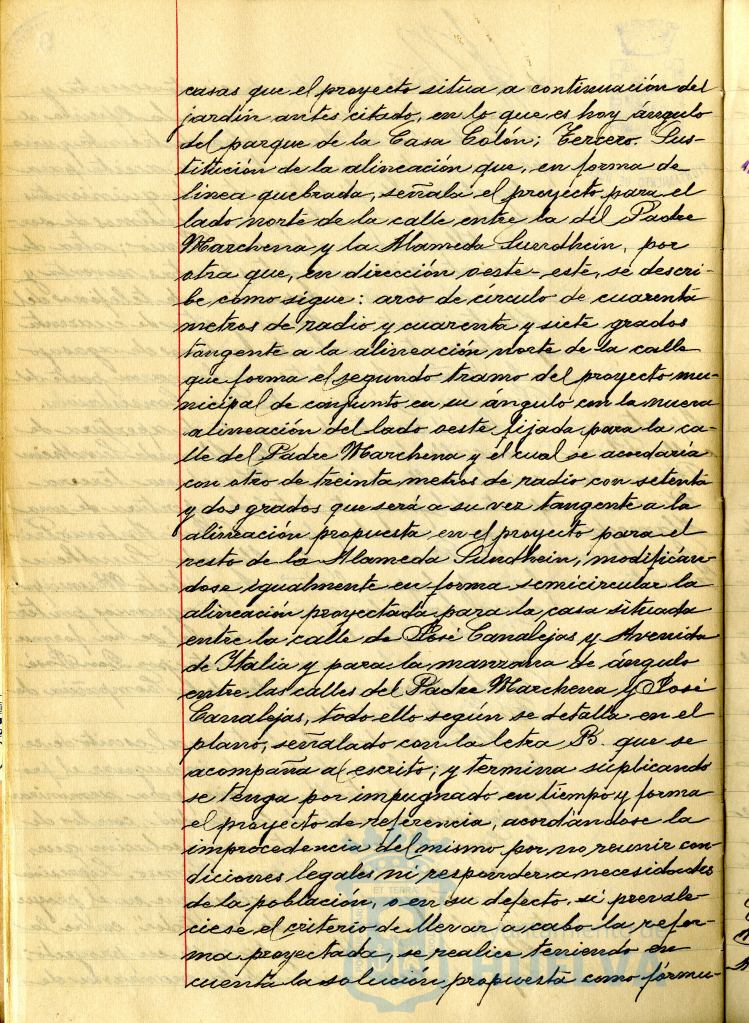 casas que el proyecto situa a continuación del
jardín antes citado, en lo que es hoy ángulo
del parque de la Casa Colón; Tercero. Sus-
titución de la alineación que, en forma de
línea quebrada, señala el proyecto para el
lado norte de la calle entre la del Padre
Marchena y la Alameda Suerdhein, por
otra que, en dirección oeste-este, se descri-
be como sigue: arco de círculo de cuarenta
metros de radio y cuarenta y siete grados
tangente a la alineación norte de la calle
que forma el segundo tramo del proyecto mu-
nicipal de conjunto en su angulo con la nueva
alineación del lado oeste fijada para la ca-
lle del Padre Marchena y el cual se acordaría
con otro de treinta metros de radio con setenta
y dos grados que será a su vez tangente a la
alineación propuesta en el proyecto para el
resto de la Alameda Sundhein, modificán-
dose igualmente en forma semicircular la
alineación proyectada para la casa situada
entre la calle de José Canalejas y Avenida
de Italia y para la manzana de ángulo
entre las calles del Padre Marchena y José
Canalejas, todo ello según se detalla en el
plano, señalado con la letra B. que se
acompaña al escrito; y termina suplicando
se tenga por impugnado en tiempo y forma
el proyecto de referencia, acordándose la
improcedencia del mismo por no reunir con-
diciones legales ni responder a necesidades
de la población, o en su defecto, si prevale-
ciese el criterio de llevar a cabo la refor-
ma proyectada, se realice teniendo en
cuenta la solución propuesta como fórmu-
ET TERRA